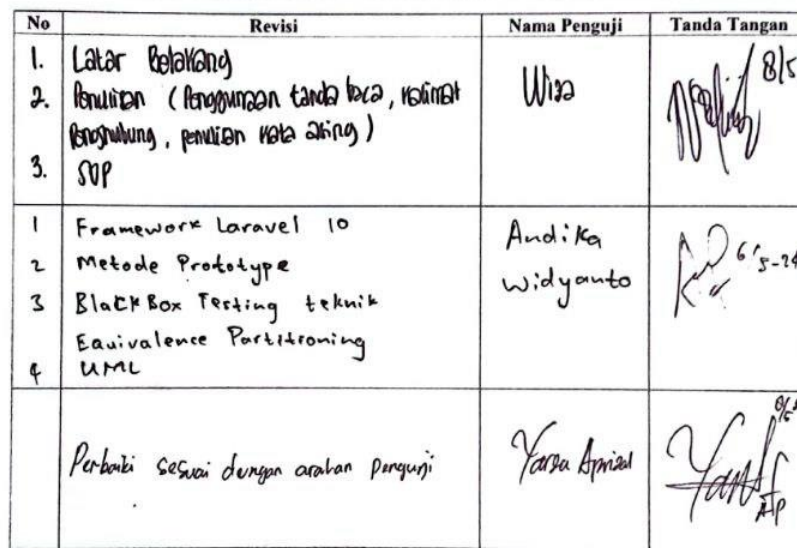 No Revisi Nama Penguji Tanda Tangan
1. Latar Belakang
2. Penulisan (Penggunaan tanda baca, kalimat
Penghubung, penulisan kata asing)
3. SOP
Wiza
8/5
1 Framework Laravel 10
2 Metode Prototype
3 BlackBox Testing teknik
Equivalence Partitioning
4 UML
Andika
Widyanto
6/5-24
Perbaiki sesuai dengan arahan penguji
Yarza Aprizal
8/5